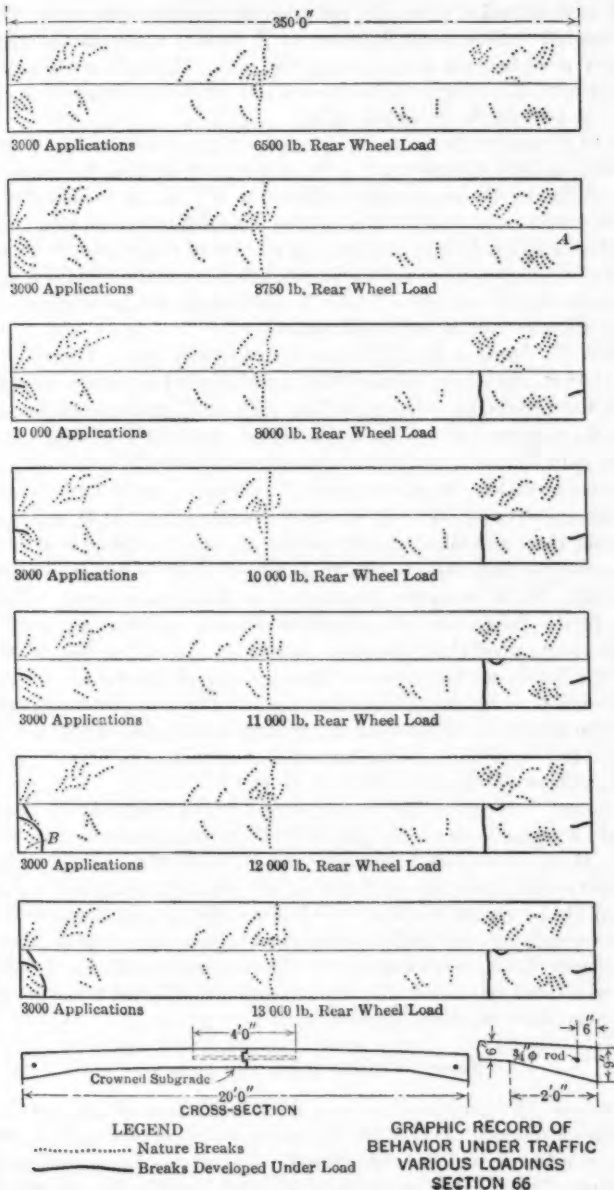 350'0"
3000 Applications 6500 lb. Rear Wheel Load
A
3000 Applications 8750 lb. Rear Wheel Load
10 000 Applications 8000 lb. Rear Wheel Load
3000 Applications 10 000 lb. Rear Wheel Load
3000 Applications 11 000 lb. Rear Wheel Load
B
3000 Applications 12 000 lb. Rear Wheel Load
3000 Applications 13 000 lb. Rear Wheel Load
4'0"
6"
6"
¾"φ rod
9"
Crowned Subgrade
20'0"
2'0"
CROSS-SECTION
LEGEND
Nature Breaks
Breaks Developed Under Load
GRAPHIC RECORD OF
BEHAVIOR UNDER TRAFFIC
VARIOUS LOADINGS
SECTION 66